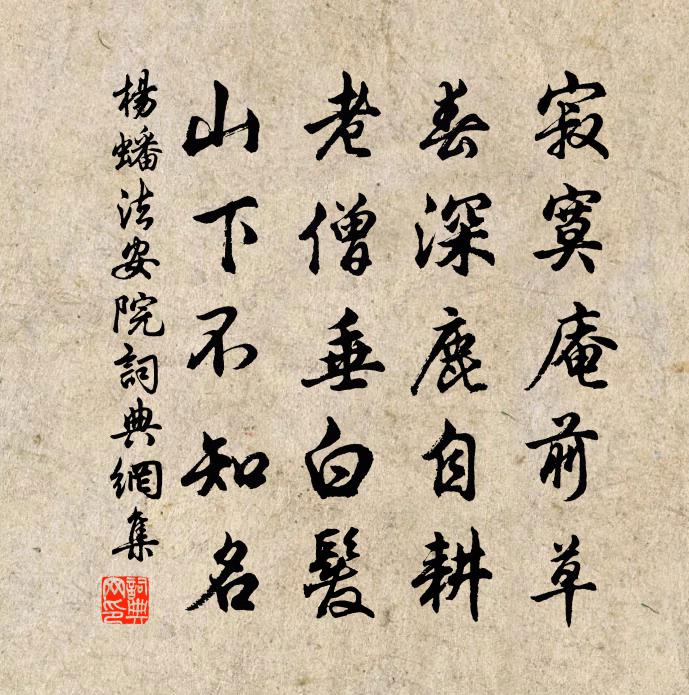 寂寞庵前草
春深鹿自耕
老僧垂白髮
山下不知名
楊蟠法安院詞典網集
詞典
网印